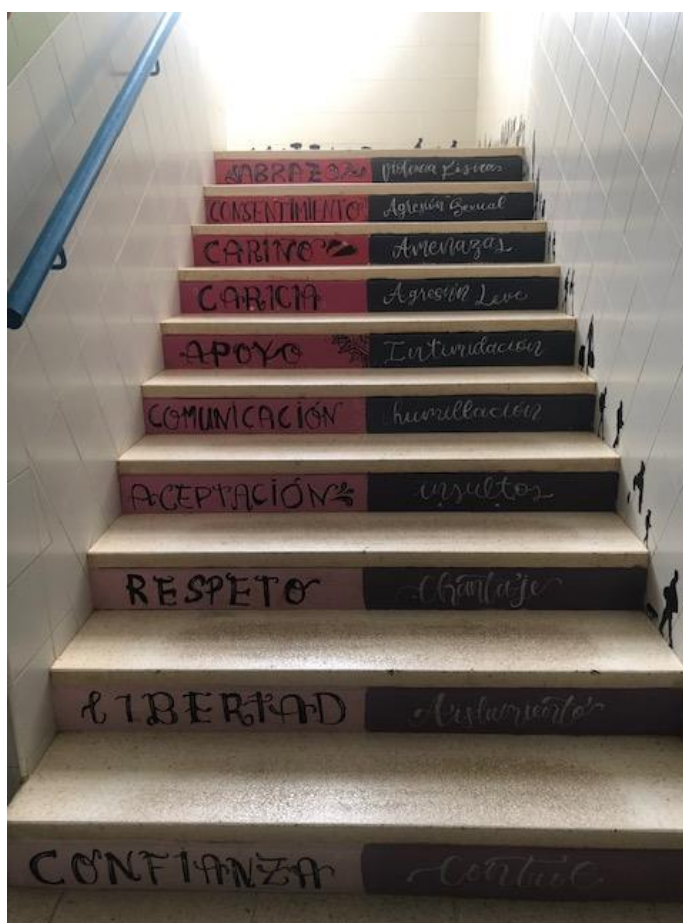 ABRAZO Violencia Física
CONSENTIMIENTO Agresión Sexual
CARIÑO Amenazas
CARICIA Agresión Leve
APOYO Intimidación
COMUNICACIÓN humillación
ACEPTACIÓN insultos
RESPETO Chantaje
LIBERTAD Aislamiento
CONFIANZA Control